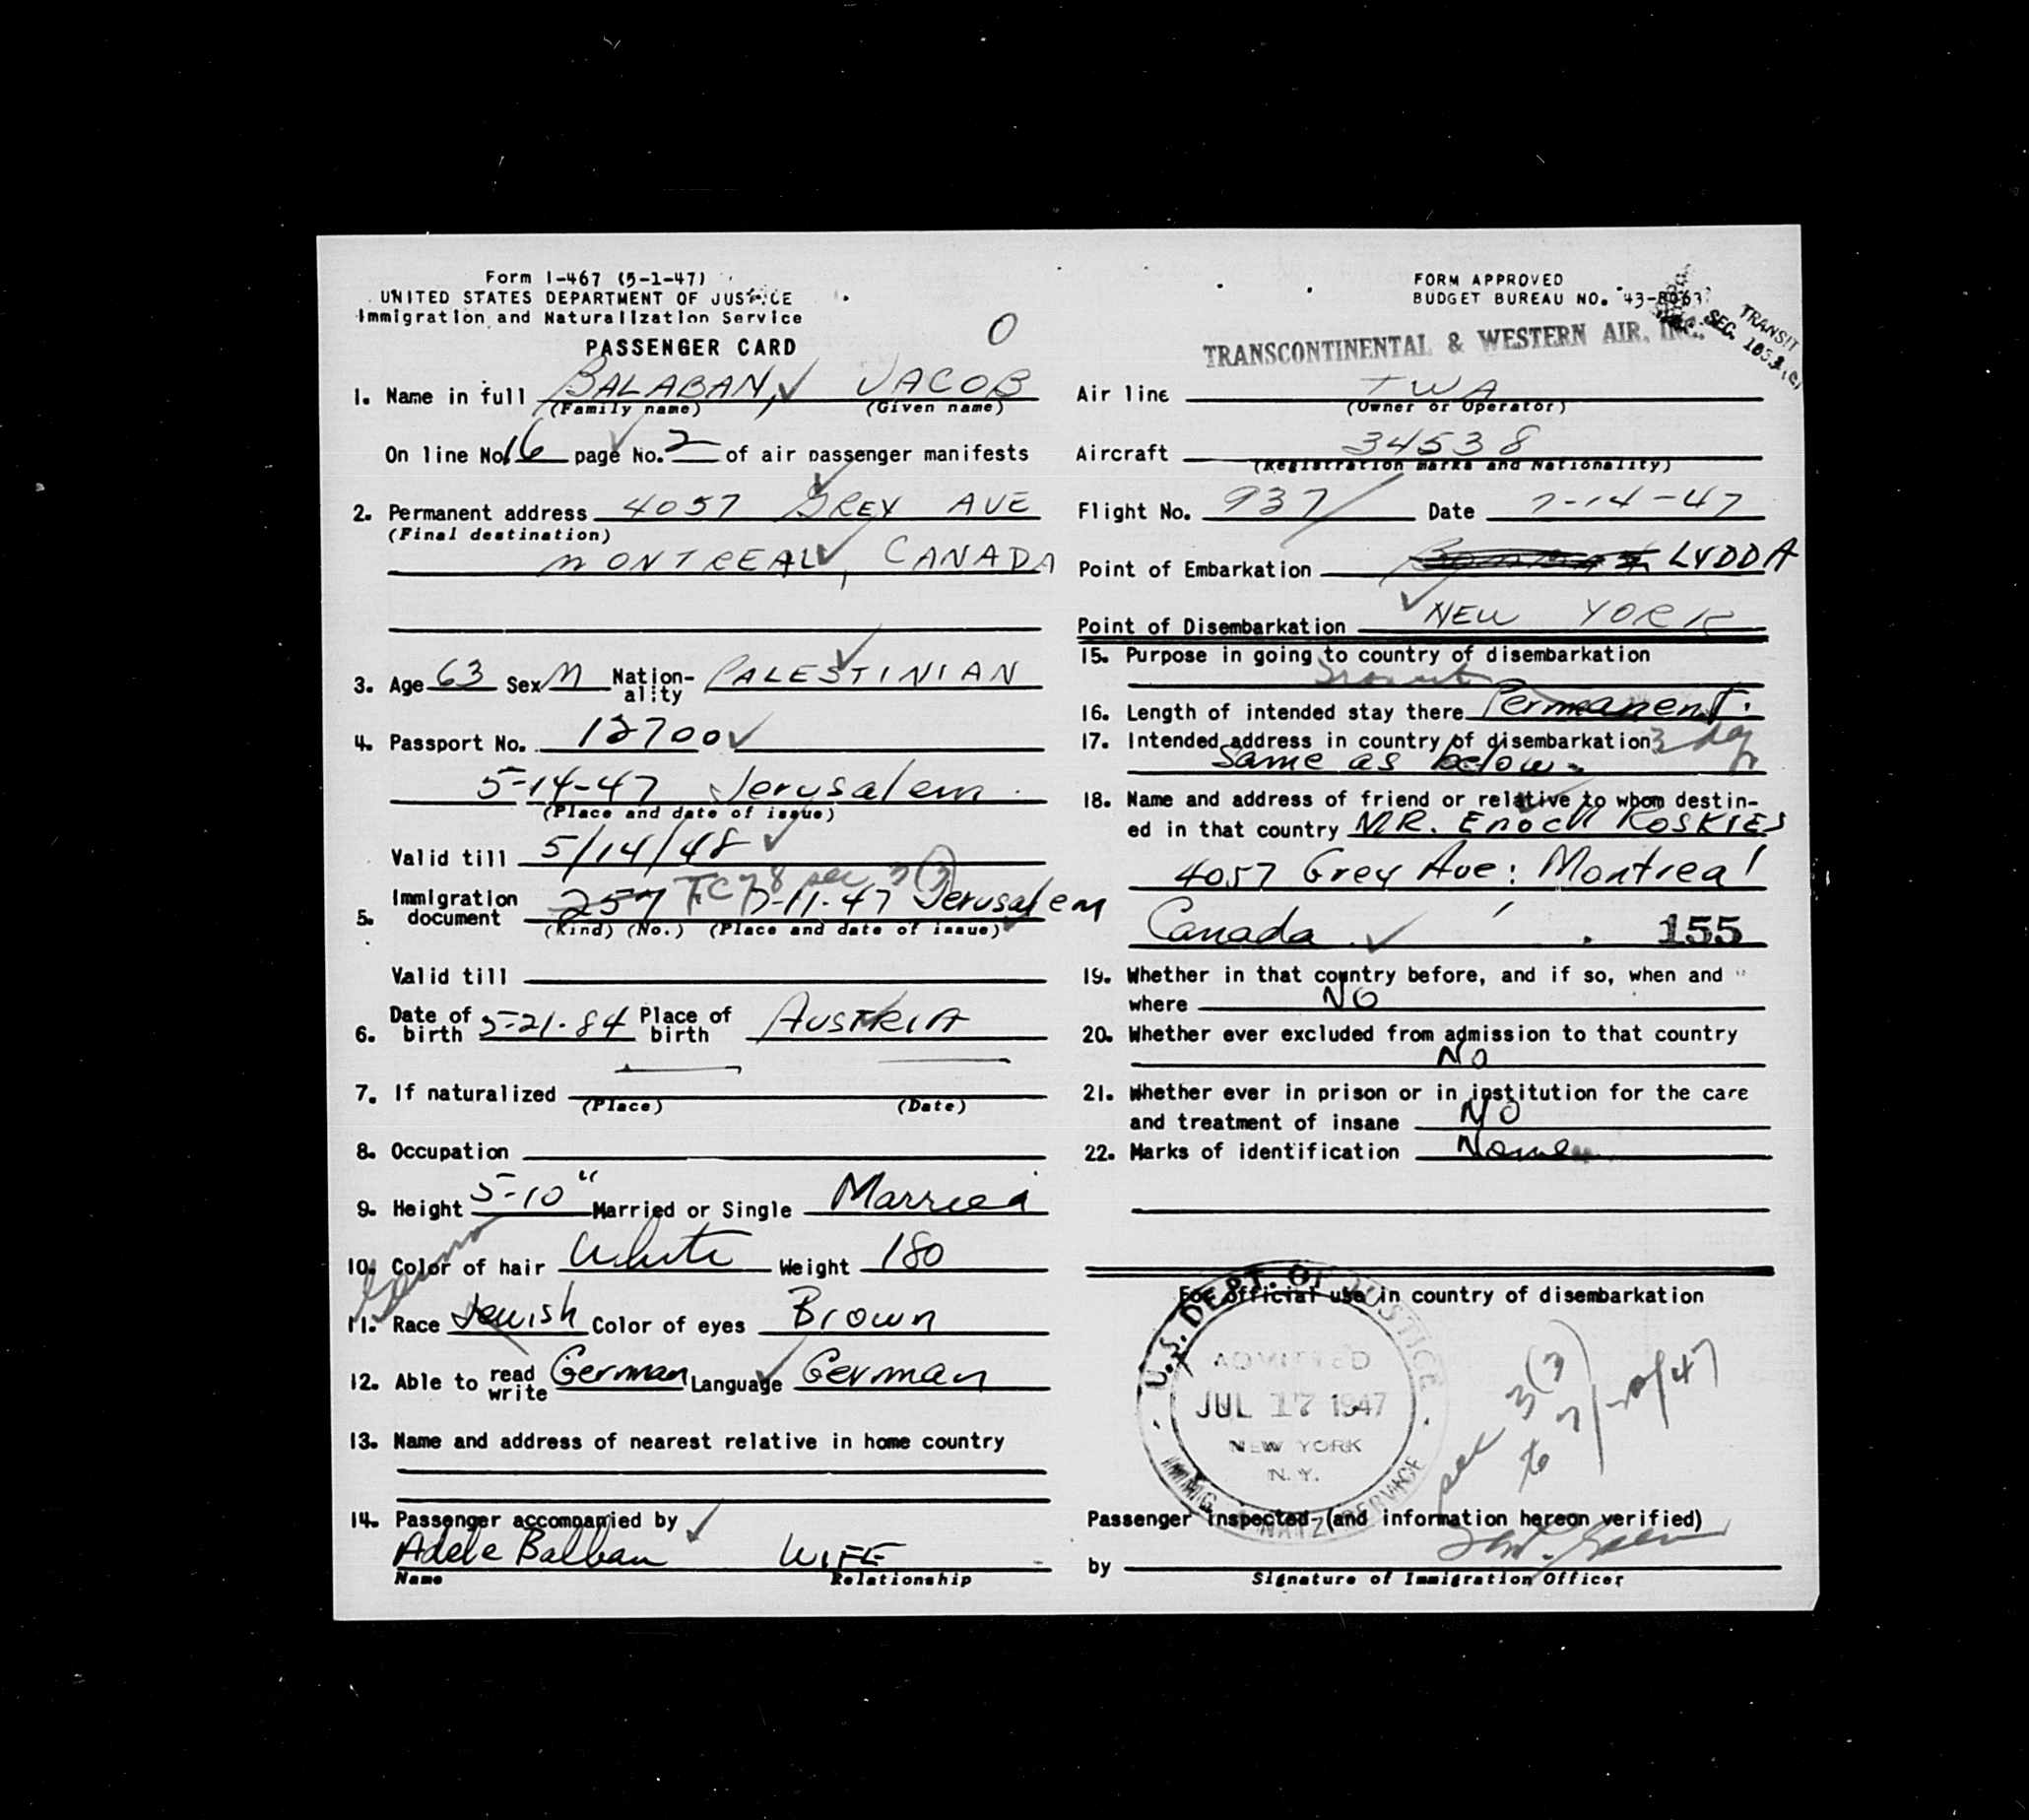 Form I-467 (5-1-47)
UNITED STATES DEPARTMENT OF JUSTICE
Immigration and Naturalization Service
PASSENGER CARD
O
1. Name in full BALABAN, JACOB
(Family name) (Given name)
On line No. 16 page No. 2 of air passenger manifests
2. Permanent address 4057 GREY AVE
(Final destination)
MONTREAL, CANADA
3. Age 63 Sex M Nationality PALESTINIAN
4. Passport No. 12700
5-14-47 Jerusalem
(Place and date of issue)
Valid till 5/14/48
5. Immigration document 257 7-11-47 Jerusalem
(Kind) (No.) (Place and date of issue)
Valid till
6. Date of birth 5-21-84 Place of birth AUSTRIA
7. If naturalized
(Place) (Date)
8. Occupation
9. Height 5-10" Married or Single Married
10. Color of hair White Weight 180
German
11. Race Jewish Color of eyes Brown
12. Able to read write German Language German
13. Name and address of nearest relative in home country
14. Passenger accompanied by
Adele Balban WIFE
Name Relationship
FORM APPROVED
BUDGET BUREAU NO. 43-R063
TRANSIT
SEC.
TRANSCONTINENTAL & WESTERN AIR, INC.
Air line TWA
(Owner or Operator)
Aircraft 34538
(Registration marks and Nationality)
Flight No. 937 Date 7-14-47
Point of Embarkation LYDDA
Point of Disembarkation NEW YORK
15. Purpose in going to country of disembarkation
Transit
16. Length of intended stay there Permanent.
17. Intended address in country of disembarkation 3 day
Same as below
18. Name and address of friend or relative to whom destin-
ed in that country MR. Enoch ROSKIES
4057 Grey Ave: Montreal
Canada 155
19. Whether in that country before, and if so, when and
where NO
20. Whether ever excluded from admission to that country
No
21. Whether ever in prison or in institution for the care
and treatment of insane NO
22. Marks of identification None
For official use in country of disembarkation
U.S. DEPT. OF JUSTICE
ADMITTED
JUL 17 1947
NEW YORK
N.Y.
IMMIG. NATZ SERVICE
sec 3(3)
to 7/20/47
Passenger inspected (and information hereon verified)
by
Signature of Immigration Officer